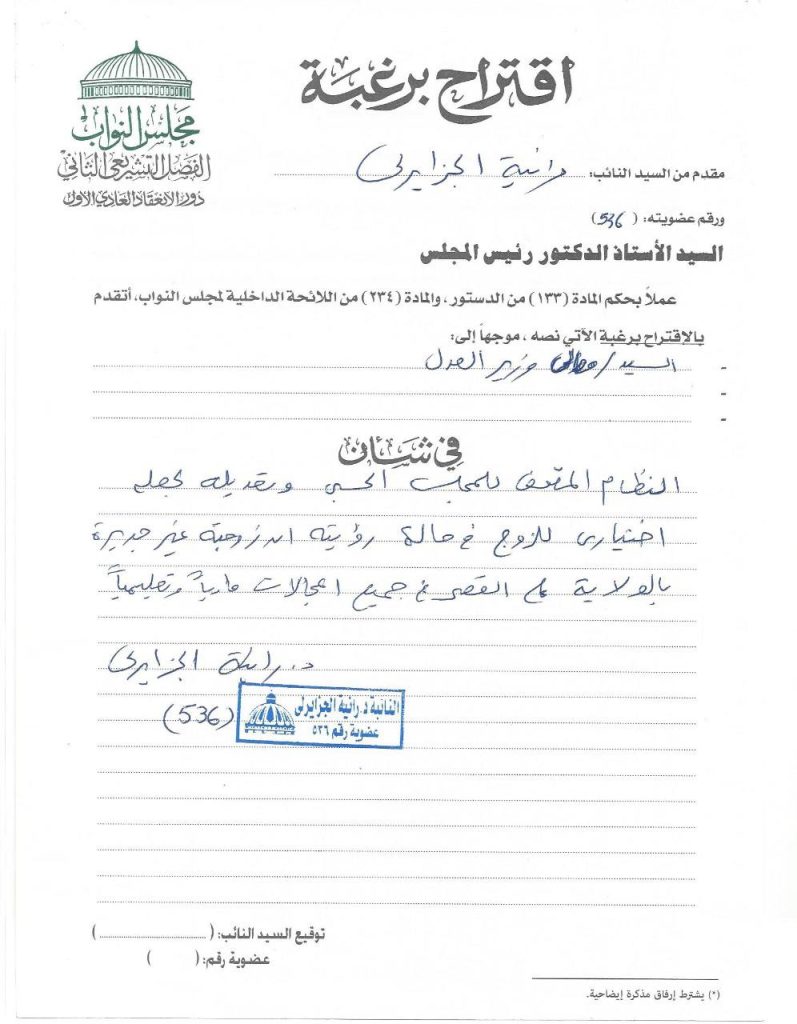 مجلس النواب
الفصل التشريعى الثانى
دور الانعقاد العادى الأول
اقتراح برغبة
مقدم من السيد النائب: رانية الجزايرلى
ورقم عضويته: (536)
السيد الأستاذ الدكتور رئيس المجلس
عملاً بحكم المادة (١٣٣) من الدستور، والمادة (٢٣٤) من اللائحة الداخلية لمجلس النواب، أتقدم
بالاقتراح برغبة الآتي نصه، موجهاً إلى:
- السيد/ معالى وزير العدل
-
-
فى شأن
النظام للمجلس الحسبى وتعديله لجعله
اختيارى للزوج فى حالة رؤيته ان زوجته غير جديرة
بالولاية على القصر فى جميع المجالات مادياً وتعليمياً
د. رانية الجزايرلى
(536)
النائبة د. رانية الجزايرلى
عضوية رقم ٥٣٦
توقيع السيد النائب: ( )
عضوية رقم: ( )
(*) يشترط إرفاق مذكرة إيضاحية.